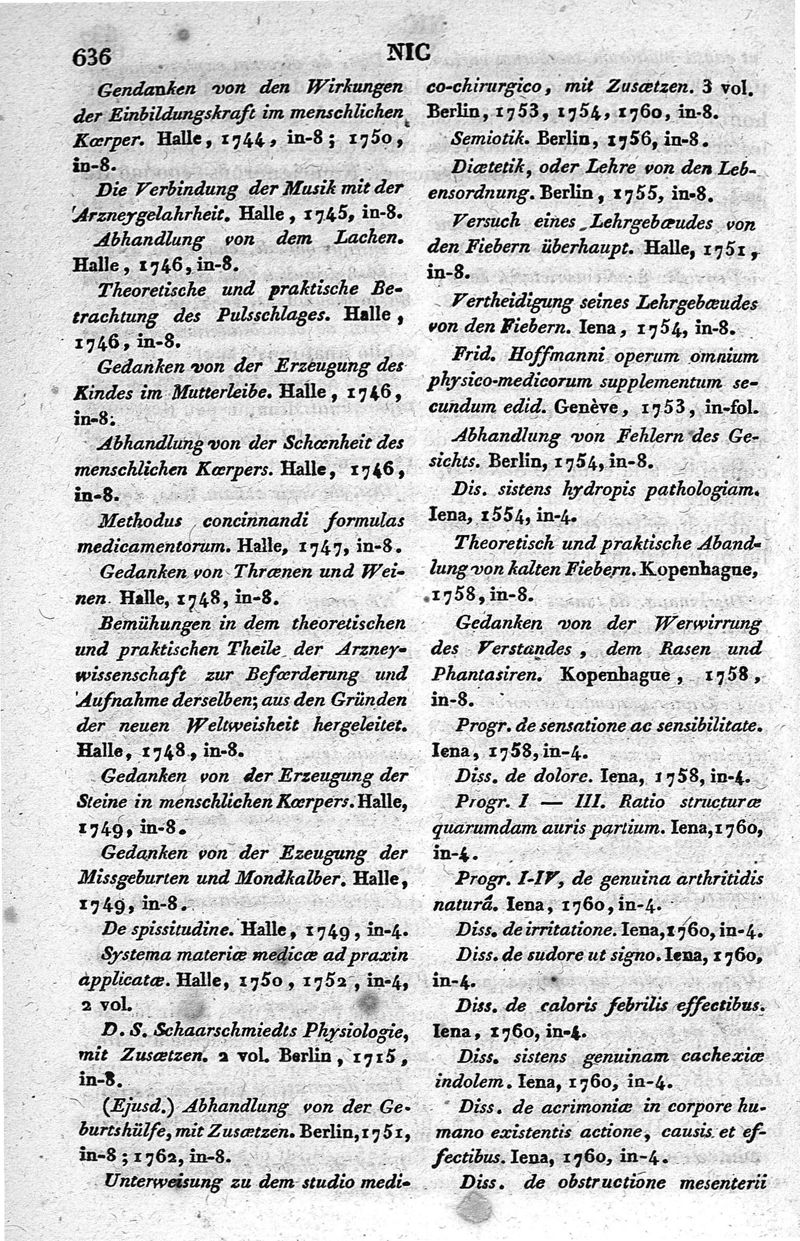 636
NIC
Gendanken von den Wirkungen
der Einbildungskraft im menschlichen
Kœrper. Halle, 1744, in-8; 1750,
in-8.
Die Verbindung der Musik mit der
Arzneygelahrheit. Halle, 1745, in-8.
Abhandlung von dem Lachen.
Halle, 1746, in-8.
Theoretische und praktische Be-
trachtung des Pulsschlages. Halle,
1746, in-8.
Gedanken von der Erzeugung des
Kindes im Mutterleibe. Halle, 1746,
in-8.
Abhandlung von der Schœnheit des
menschlichen Kœrpers. Halle, 1746,
in-8.
Methodus concinnandi formulas
medicamentorum. Halle, 1747, in-8.
Gedanken von Thrænen und Wei-
nen. Halle, 1748, in-8.
Bemühungen in dem theoretischen
und praktischen Theile der Arzney-
wissenschaft zur Befœrderung und
Aufnahme derselben; aus den Gründen
der neuen Weltweisheit hergeleitet.
Halle, 1748, in-8.
Gedanken von der Erzeugung der
Steine in menschlichen Kœrpers. Halle,
1749, in-8.
Gedanken von der Ezeugung der
Missgeburten und Mondkalber. Halle,
1749, in-8.
De spissitudine. Halle, 1749, in-4.
Systema materiæ medicæ ad praxin
applicatæ. Halle, 1750, 1752, in-4,
2 vol.
D. S. Schaarschmiedts Physiologie,
mit Zusætzen. 2 vol. Berlin, 1715,
in-8.
(Ejusd.) Abhandlung von der Ge-
burtshülfe, mit Zusætzen. Berlin, 1751,
in-8; 1762, in-8.
Unterweisung zu dem studio medi-
co-chirurgico, mit Zusætzen. 3 vol.
Berlin, 1753, 1754, 1760, in-8.
Semiotik. Berlin, 1756, in-8.
Diætetik, oder Lehre von den Leb-
ensordnung. Berlin, 1755, in-8.
Versuch eines Lehrgebæudes von
den Fiebern überhaupt. Halle, 1751,
in-8.
Vertheidigung seines Lehrgebæudes
von den Fiebern. Iena, 1754, in-8.
Frid. Hoffmanni operum omnium
physico-medicorum supplementum se-
cundum edid. Genève, 1753, in-fol.
Abhandlung von Fehlern des Ge-
sichts. Berlin, 1754, in-8.
Dis. sistens hydropis pathologiam.
Iena, 1554, in-4.
Theoretisch und praktische Aband-
lung von kalten Fiebern. Kopenhague,
1758, in-8.
Gedanken von der Werwirrung
des Verstandes, dem Rasen und
Phantasiren. Kopenhague, 1758,
in-8.
Progr. de sensatione ac sensibilitate.
Iena, 1758, in-4.
Diss. de dolore. Iena, 1758, in-4.
Progr. I — III. Ratio structuræ
quarumdam auris partium. Iena, 1760,
in-4.
Progr. I-IV, de genuina arthritidis
naturâ. Iena, 1760, in-4.
Diss. de irritatione. Iena, 1760, in-4.
Diss. de sudore ut signo. Iena, 1760,
in-4.
Diss. de caloris febrilis effectibus.
Iena, 1760, in-4.
Diss. sistens genuinam cachexiæ
indolem. Iena, 1760, in-4.
Diss. de acrimoniæ in corpore hu-
mano existentis actione, causis et ef-
fectibus. Iena, 1760, in-4.
Diss. de obstructione mesenterii